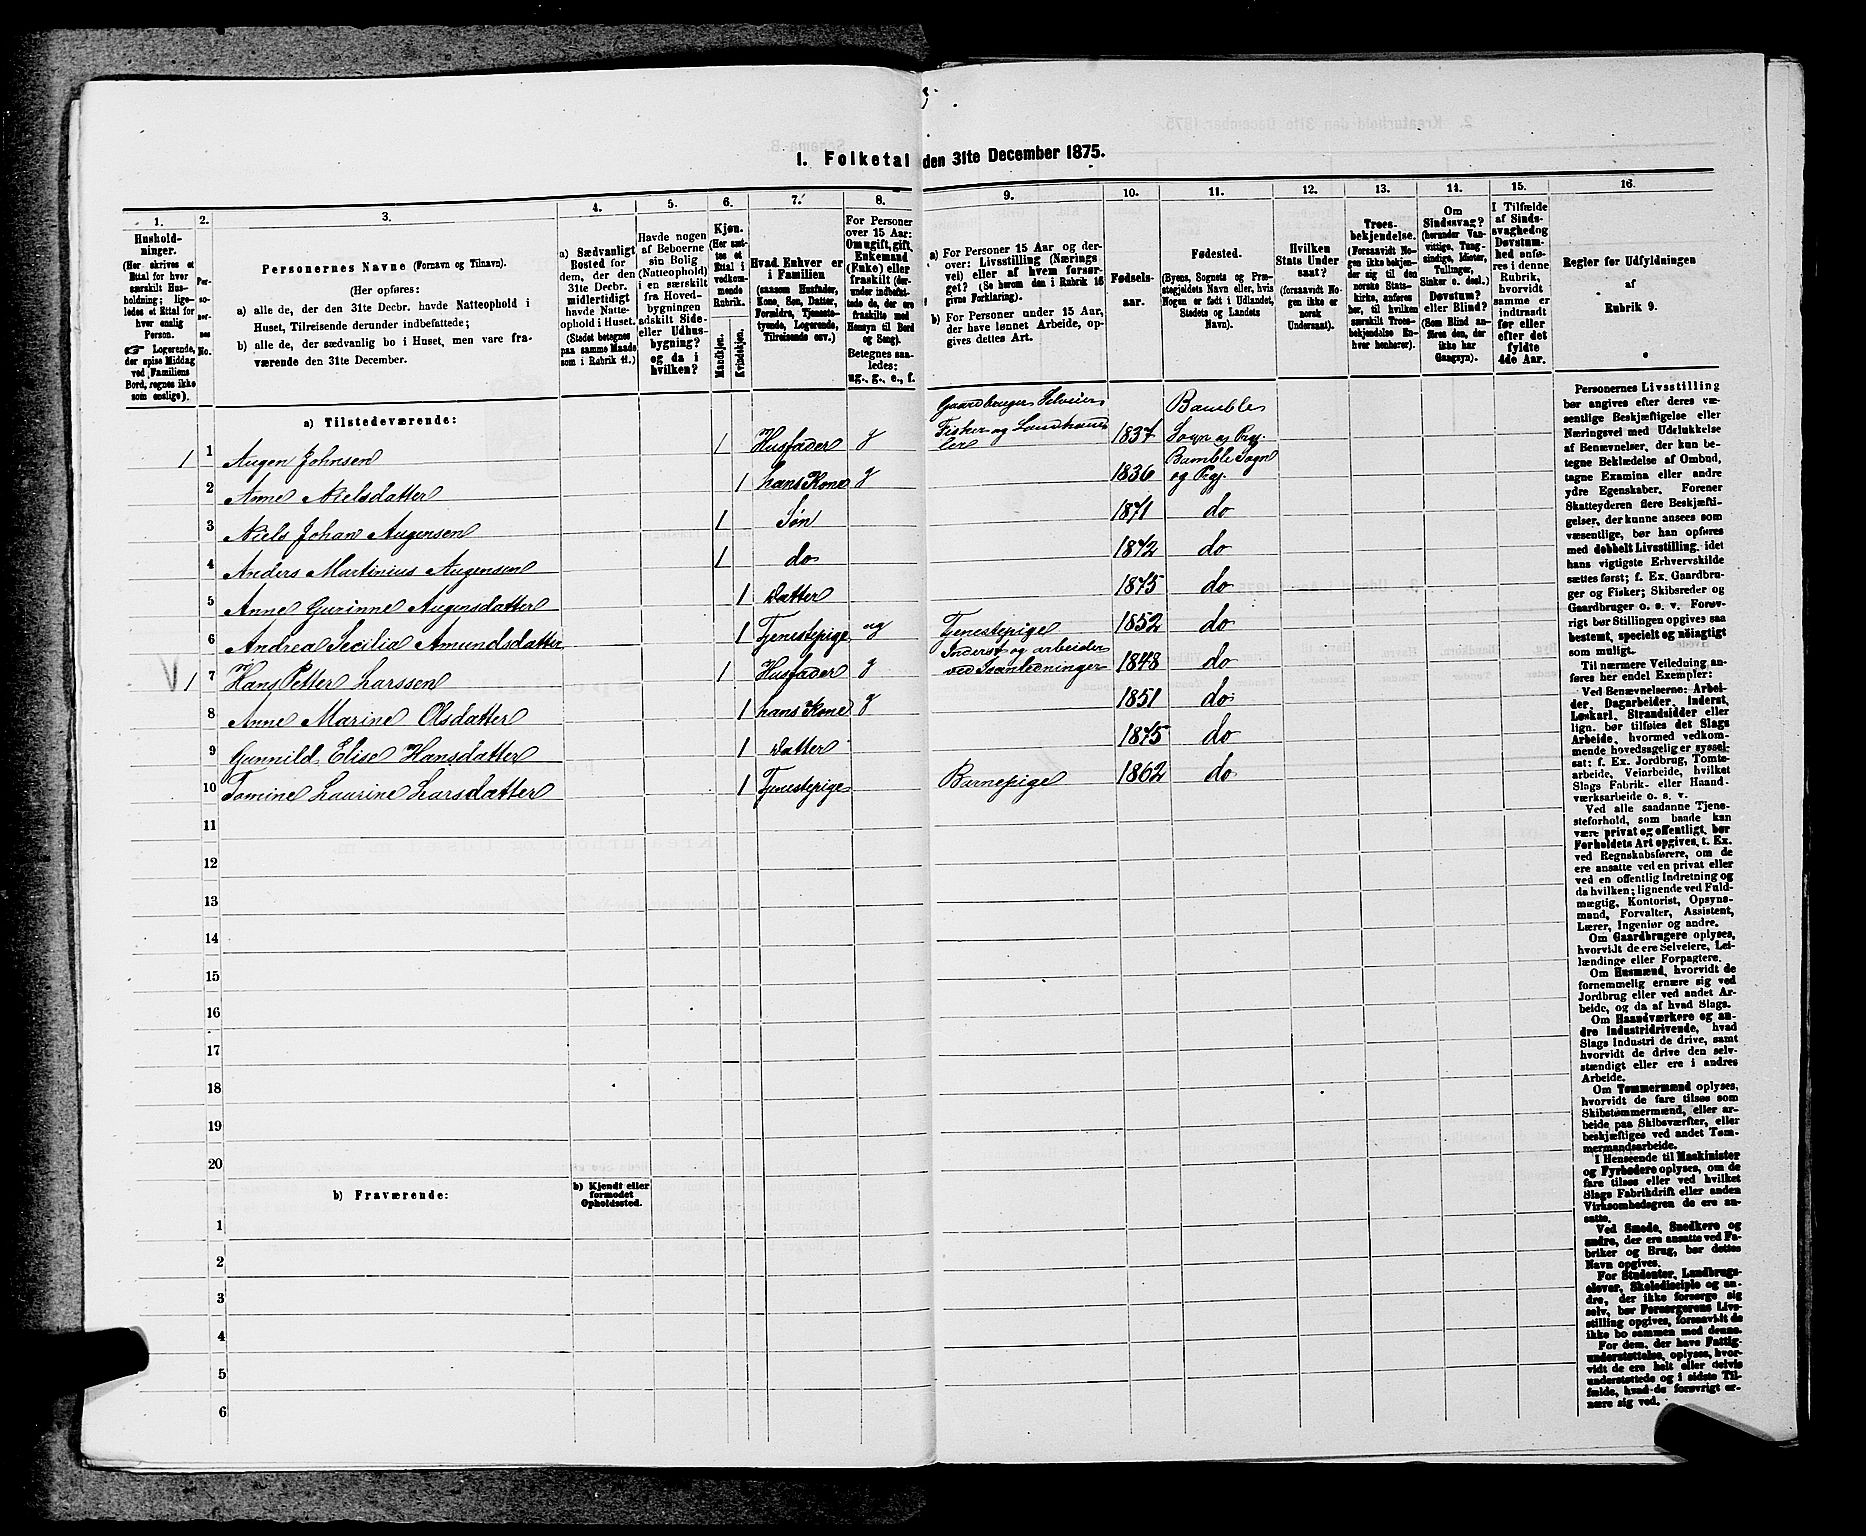 1. Folketal den 31te December 1875.
1. 2. 3. 4. 5. 6. 7. 8. 9. 10. 11. 12. 13. 14. 15. 16.
Hushold-
ninger.
(Her skrives et
Ettal for hver
særskilt Hus-
holdning; lige-
ledes et Ettal for
hver enslig
Person.
☞ Logerende,
der spise Middag
ved Familiens
Bord, regnes ikke
som enslige).
Per-
so-
ner-
nes
No.
Personernes Navne (Fornavn og Tilnavn).
(Her opføres:
a) alle de, der den 31te Decbr. havde Natteophold i
Huset, Tilreisende derunder indbefattede;
b) alle de, der sædvanlig bo i Huset, men vare fra-
værende den 31te December.
a) Sædvanligt
Bosted for
dem, der den
31te Decbr.
midlertidigt
havde Natte-
ophold i Huset.
(Stedet betegnes
paa samme Maade
som i Rubrik 11.)
Havde nogen
af Beboerne
sin Bolig
(Natteophold)
i en særskilt
fra Hoved-
bygningen
adskilt Side-
eller Udhus-
bygning?
og da i
hvilken?
Kjøn.
(Her sæt-
tes et
Ettal i
vedkom-
mende
Rubrik.
Mandkjøn.
Kvindekjøn.
Hvad Enhver er
i Familien
(saasom Husfader,
Kone, Søn, Datter,
Forældre, Tjeneste-
tyende, Logerende,
Tilreisende osv.)
For Personer
over 15 Aar:
Om ugift, gift,
Enkemand
(Enke) eller
fraskilt (der-
under indbefat-
tede de, der ere
fraskilte med
Hensyn til Bord
og Seng).
Betegnes saa-
ledes:
ug., g., e., f.
a) For Personer 15 Aar og der-
over: Livsstilling (Nærings
vei) eller af hvem forsør-
get? (Se herom den i Rubrik 16
givne Forklaring).
b) For Personer under 15 Aar,
der have lønnet Arbeide, op-
gives dettes Art.
Fødsels-
aar.
Fødested.
(Byens, Sognets og Præ-
stegjeldets Navn eller, hvis
Nogen er født i Udlandet,
Stedets og Landets
Navn).
Hvilken
Stats Under
saat?
(forsaavidt No-
gen ikke er
norsk
Undersaat).
Troes-
bekjendelse.
(Forsaavidt No-
gen ikke bekjen-
der sig til den
norske Stats-
kirke, anføres
her, til hvilken
særskilt Troes-
bekjendelse En-
hver henhører).
Om
Sindssvag?
(herunder Van-
vittige, Tung-
sindige, Idioter,
Tullinger,
Sinker o. desl.)
Døvstum?
eller Blind?
(Som Blind an-
føres den, der
ikke har
Gangsyn).
I Tilfælde
af Sinds-
svaghed og
Døvstum-
hed anfø-
res i denne
Rubrik,
hvorvidt
samme er
indtraadt
før eller
efter det
fyldte
4de Aar.
Regler for Udfyldningen
af
Rubrik 9.
a) Tilstedeværende:
1 1 Augen Johnsen 1 Husfader g Gaardbruger Selveier, Fisker og Landhand- ler 1837 Bamble Sogn og Prgj.
2 Anne Nielsdatter 1 hans Kone g 1836 Bamble Sogn og Prgj.
3 Niels Johan Augensen 1 Søn 1871 do
4 Anders Martinius Augensen 1 do 1872 do
5 Anne Gurinne Augensdatter 1 Datter 1875 do
6 Andrea Secilia Amundsdatter 1 Tjenestepige ug Tjenestepige 1852 do
1 7 Hans Petter Larssen 1 Husfader g Inderst og arbeider ved 1848 do
8 Anne Marine Olsdatter 1 hans Kone g 1851 do
9 Gunnild Elise Hansdatter 1 Datter 1875 do
10 Tomine Laurine Larsdatter 1 Tjenestepige Barnepige 1862 do
11
12
13
14
15
16
17
18
19
20
b) Fraværende:
b) Kjendt eller
formodet
Opholdssted.
1
2
3
4
5
6
Personernes Livsstilling
bør angives efter deres væ-
sentlige Beskjæftigelse eller
Næringsvei med Udelukkelse
af Benævnelser, der kun be-
tegne Beklædelse af Ombud,
tagne Examina eller andre
ydre Egenskaber. Forener
Skatteyderen flere Beskjæfti-
gelser, der kunne ansees som
væsentlige, bør han opføres
med dobbelt Livsstilling, idet
hans vigtigste Erhvervskilde
sættes først; f. Ex. Gaardbru-
ger og Fisker; Skibsreder og
Gaardbruger o. s. v. Forøv-
rigt bør Stillingen opgives saa
bestemt, specielt og nöiagtigt
som muligt.
Til nærmere Veiledning an-
føres her endel Exempler:
Ved Benævnelserne: Arbei-
der, Dagarbeider, Inderst,
Løskarl, Strandsidder eller
lign. bør tilføies det Slags
Arbeide, hvormed vedkom-
mende hovedsagelig er syssel-
sat; f. Ex. Jordbrug, Tomte-
arbeide, Veiarbeide, hvilket
Slags Fabrik- eller Haand-
værksarbeide o. s. v.
Ved alle saadanne Tjene-
steforhold, som baade kan
være privat og offentligt, bør
Forholdets Art opgives, f. Ex.
ved Regnskabsførere, om de
ere ansatte ved en privat eller
ved en offentlig Indretning og
da hvilken; lignende ved Fuld-
mægtig, Kontorist, Opsyns-
mand, Forvalter, Assistent,
Lærer, Ingeniør og andre.
Om Gaardbrugere oplyses,
hvorvidt de ere Selveiere, Lei-
lændinge eller Forpagtere.
Om Husmænd, hvorvidt de
fornemmelig ernære sig ved
Jordbrug eller ved andet Ar-
beide, og da af hvad Slags.
Om Haandværkere og an-
dre Industridrivende, hvad
Slags Industri de drive, samt
hvorvidt de drive den selv-
stændigt eller ere i andres
Arbeide.
Om Tømmermænd oplyses,
hvorvidt de fare tilsøs som
Skibstømmermænd, eller ar-
beide paa Skibsværfter, eller
beskjæftiges ved andet Tøm-
mermandsarbeide.
I Henseende til Maskinister
og Fyrbødere oplyses, om de
fare tilsøs eller ved hvilket
Slags Fabrikdrift eller anden
Virksomhedsgren de ere an-
satte.
Ved Smede, Snedkere og
andre, der ere ansatte ved Fa-
briker og Brug, bør dettes
Navn opgives.
For Studenter, Landbrugs-
elever, Skoledisciple og an-
dre, der ikke forsørge sig
selv, bør Forsørgerens Livs-
stilling opgives, forsaavidt de
ikke bo sammen med denne.
For dem, der have Fattig-
understøttelse, oplyses, hvor-
vidt de ere helt eller delvis
understøttede og i sidste Til-
fælde, hvad de forøvrigt er-
nære sig ved.